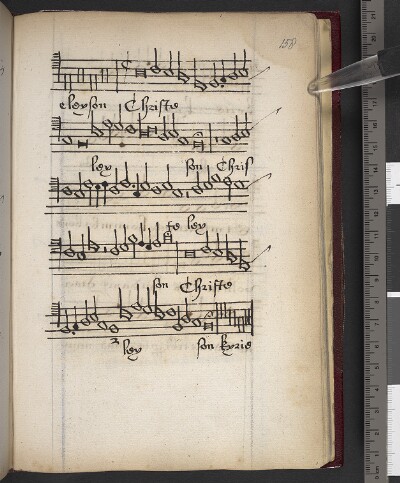 158
eleyson Christe
ley son Chris
te ley
son Christe
ley son kyrie